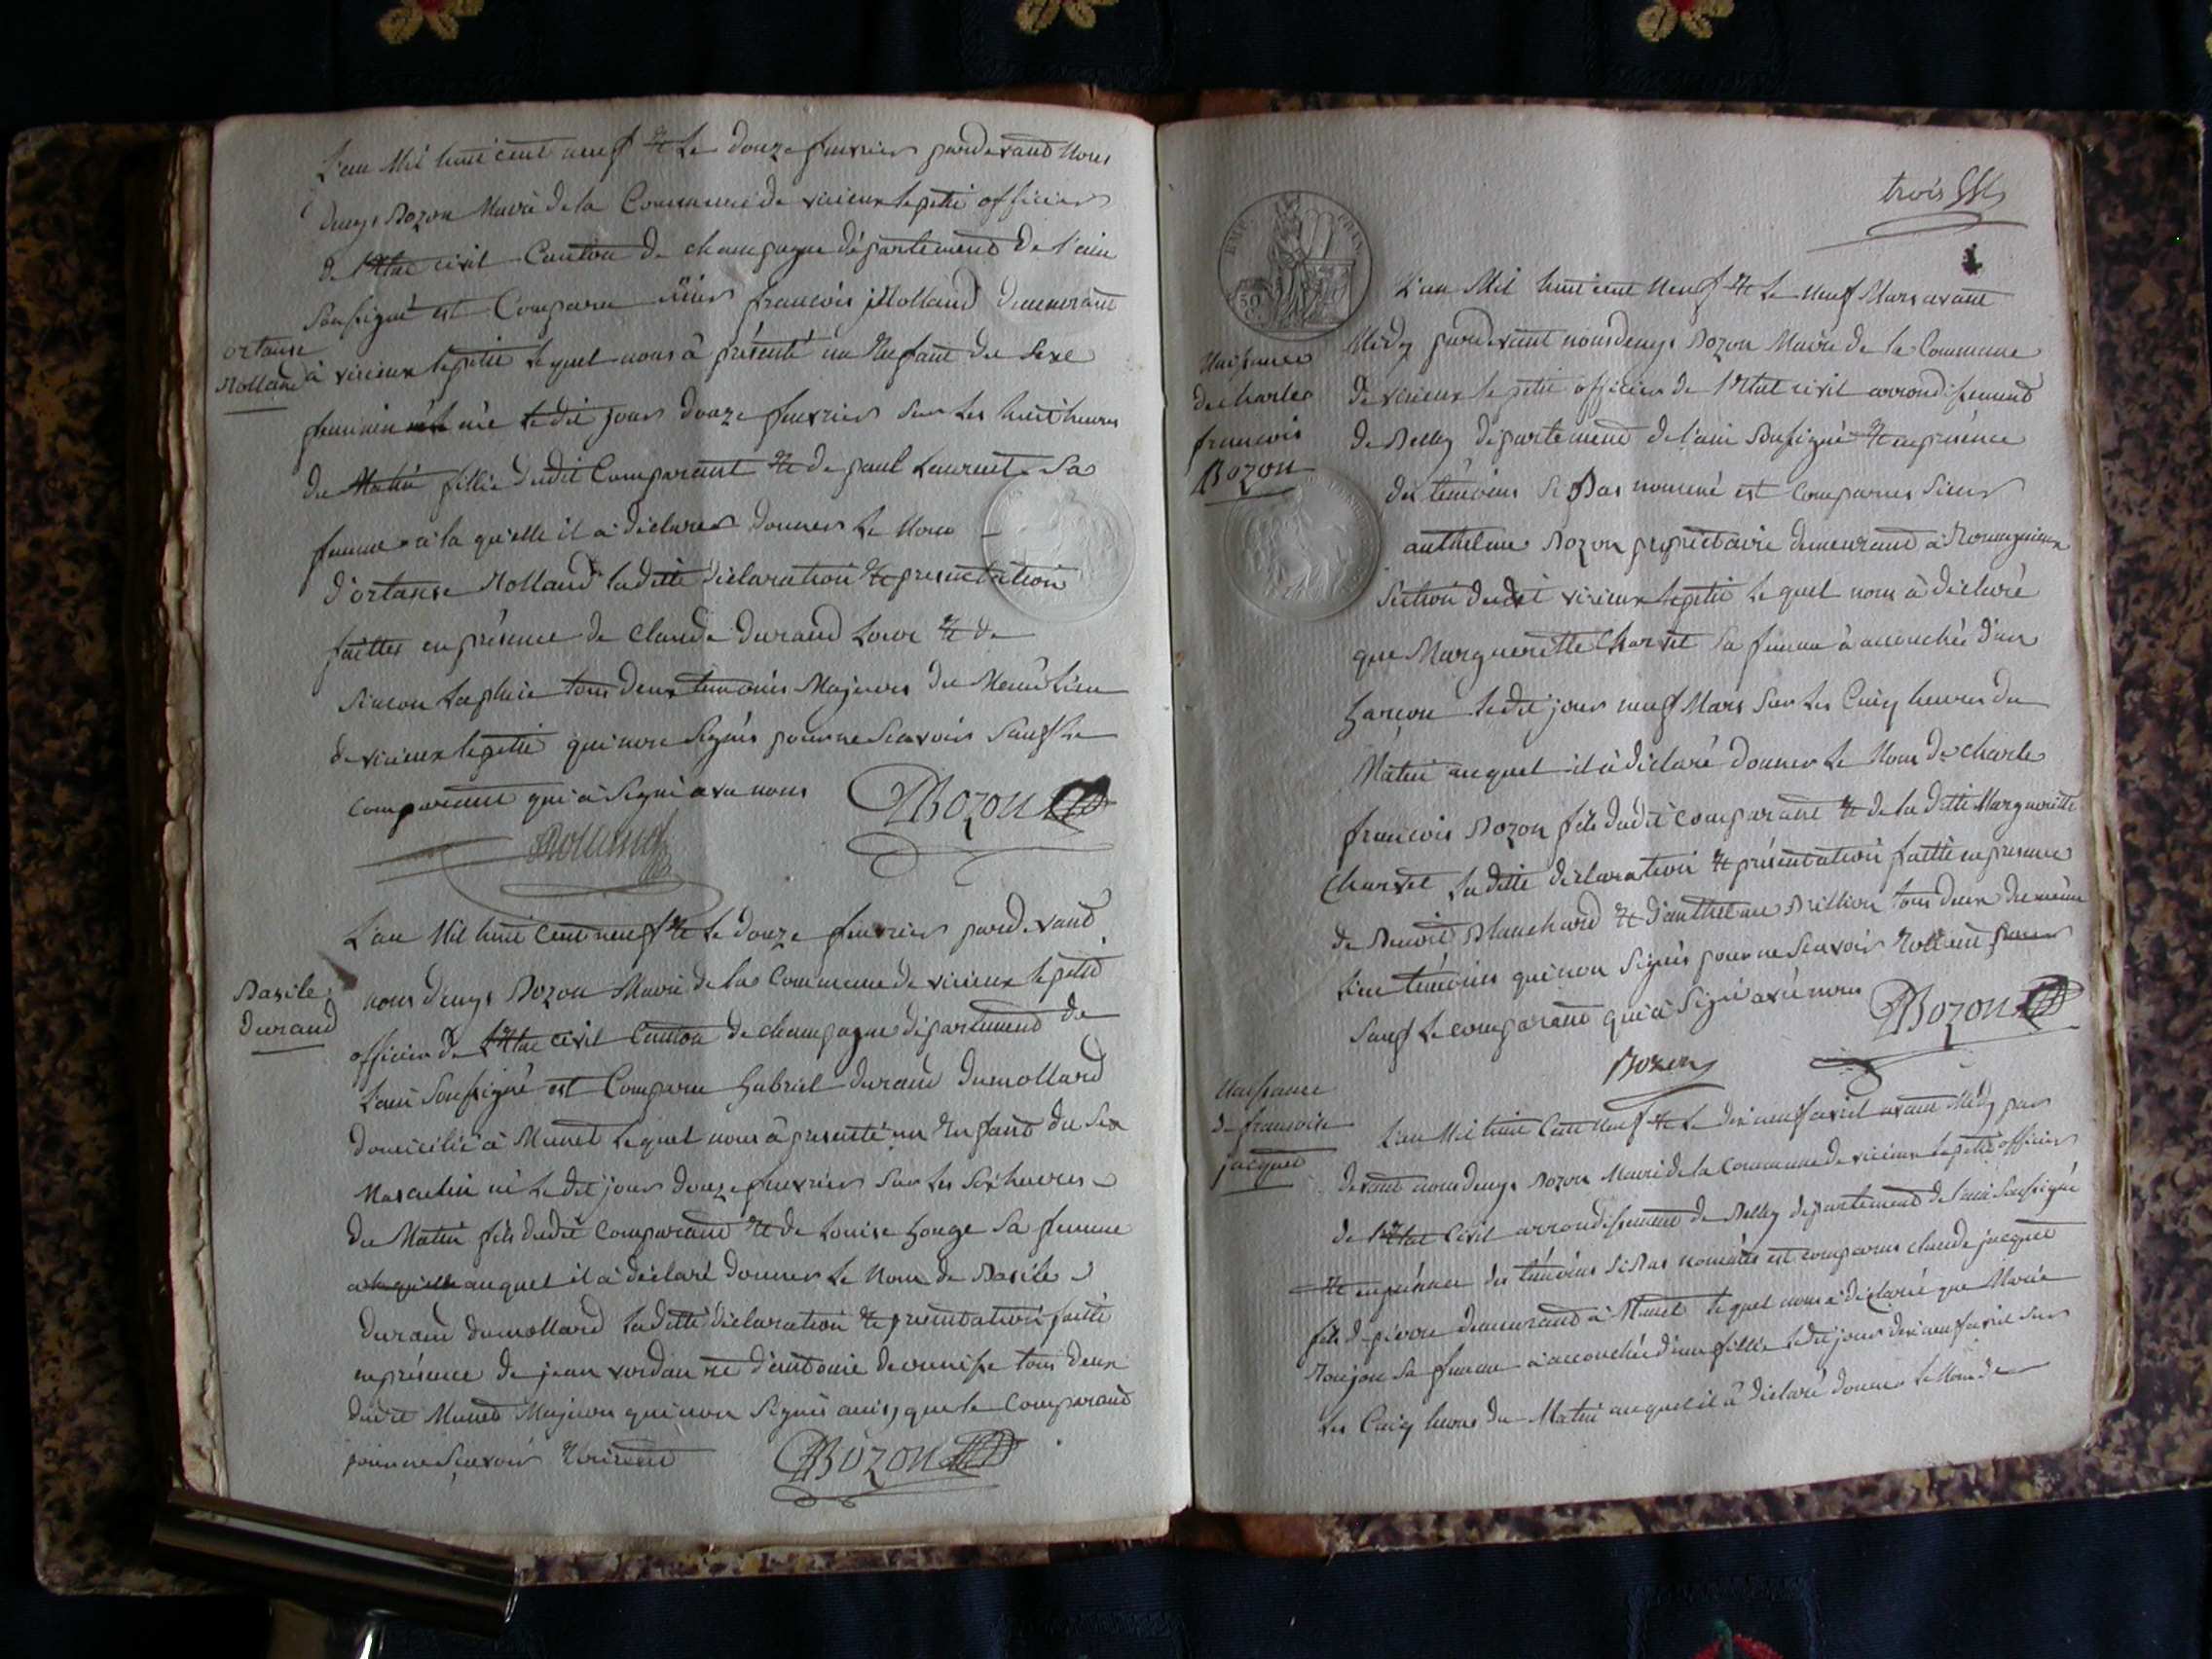 L'an Mil huit cent neuf & Le douze fevrier pardevand Nous
denys Bozon Maire de la Commune de virieux le petit officier
de l'Etat civil Canton de champagne département de l'ain
Soussigné est Comparu françois Rolland demeurant
ortanse
Rolland
à virieux le petit le quel nous à présenté un Enfant du Sexe
feminin née le dit jour douze fevrier Sur Les huit heures
du Matin fillie dudit Comparant & de Sa
femme à la qu'elle il à déclarer donner Le Nom
d'ortanse Rolland la ditte déclaration & presentation
faittes en présence de Claude durand & de
Simon tous deux temoins Majeurs du Meme Lieu
de virieux le petit qui non Signés pour ne Scavoir Sauf Le
comparant qui à Signé avec nous
DBozon
Rolland
L'an Mil huit cent neuf & Le douze fevrier pardevand
Basile
durand
nous denys Bozon Maire de la Commune de virieux le petit
officier de L'Etat civil Canton de champagne département de
L'ain Soussigné est Comparu Gabriel durand dumollard
domicilié à Munet Le quel nous à presenté un Enfand du Sex
Masculin né Le dit jour douze fevrier Sur Les Six heures
du Matin fils dudit Comparand & de Louise Sa femme
a la qu'elle auquel il à déclaré donner Le Nom de Basile
durand dumollard La ditte déclaration & presentation faitte
en présence de jean & d'antoine tous deux
dudit Munet Majeurs qui non Signés ainsy que le Comparand
pour ne Scavoir
DBozon
trois
EMP. FRAN.
50
L'an Mil huit cent Neuf & Le neuf Mars avant
Naissance
de charles
francois
Bozon
Midy pardevant nous denys Bozon Maire de la Commune
de virieux le petit officier de l'Etat civil arrondissement
de Belley département de l'ain Soussigné & en présence
des témoins Si Bas nommé est Comparus Sieur
anthelme Bozon propriétaire demeurand à
Section dudit virieux le petit Le quel nous à déclaré
que Margueritte Charvet Sa femme à accouchée d'un
Garçon le dit jour neuf Mars Sur Les Cinq heures du
Matin auquel il à déclaré donner Le Nom de Charle
francois Bozon fils dudit comparant & de la ditte Margueritte
Charvet La ditte déclaration & présentation faitte en presence
de Benoit Blanchard & d'anthelme tous deux du même
Lieu témoins qui non Signés pour ne Scavoir
Sauf Le comparand qui à Signé avec nous
DBozon
Bozon
Naissance
de francoise
jacquet
L'an Mil huit Cent Neuf & Le dix neuf avril avant Midy par
devant nous denys Bozon Maire de la Commune de virieux le petit officier
de l'Etat Civil arrondissement de Belley département de l'ain Soussigné
& en présence des témoins Si Bas nommés est comparus claude jacquet
fils de pierre demeurand à Munet le quel nous à déclaré que Marie
Sa femme à accouchée d'une fillie le dit jour dix neuf avril Sur
Les Cinq heures du Matin auquel il à déclaré donner Le Nom de